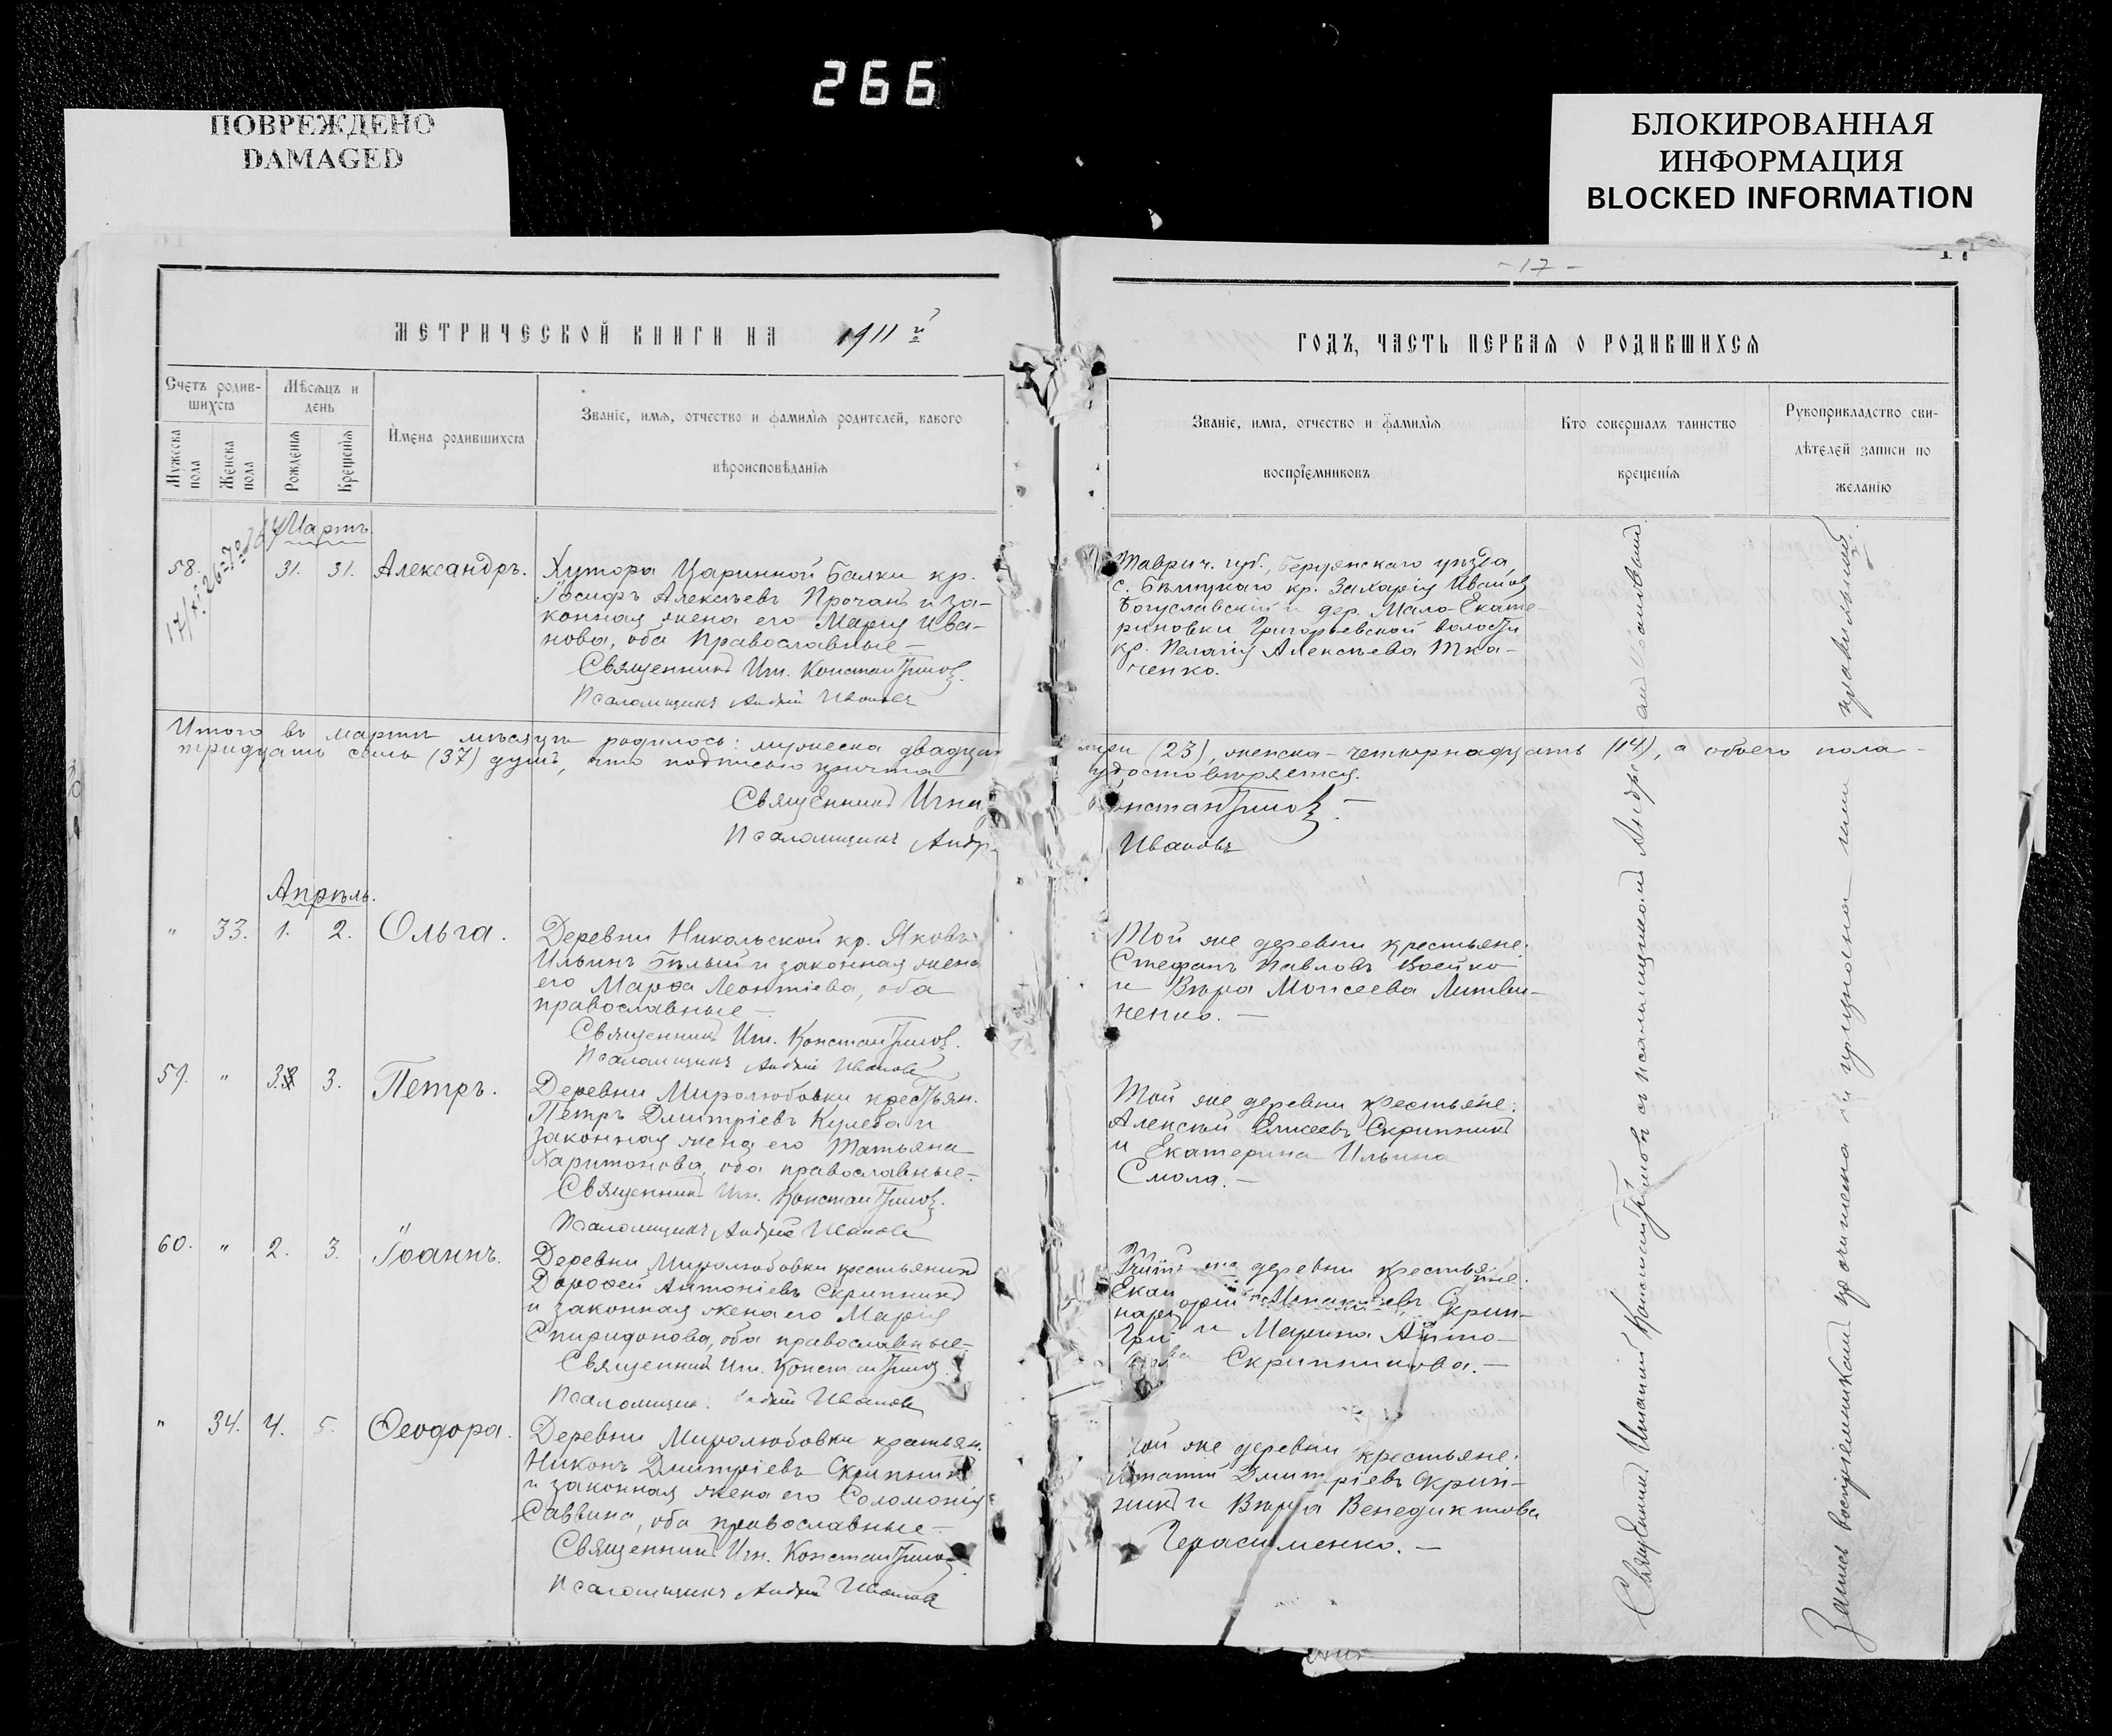 266
ПОВРЕЖДЕНО
DAMAGED
БЛОКИРОВАННАЯ
ИНФОРМАЦИЯ
BLOCKED INFORMATION
МЕТРИЧЕСКОЙ КНИГИ НА 1911 й
Счетъ родив-
шихся
Мѣсяцъ и
день
Имена родившихся
Званіе, имя, отчество и фамилія родителей, какого
вѣроисповѣданія
Мужеска
пола
Женска
пола
Рожденія
Крещенія
Мартъ.
58. 31. 31. Александръ.
Хутора Царинной Балки кр.
Іосифъ Алексѣевъ Прочанъ и за-
конная жена его Марія Ива-
нова, оба Православные –
Священникъ Иг. Константиновъ.
Псаломщикъ Андрей Ивановъ
Итого въ мартѣ мѣсяцѣ родилось: мужеска двадцат
тридцать семь (37) душъ, что подписью причта
Священникъ Игна
Псаломщикъ Андр
Апрѣль.
" 33. 1. 2. Ольга.
Деревни Никольской кр. Яковъ
Ильинъ Бѣлый и законная жена
его Марѳа Леонтіева, оба
православные –
Священникъ Иг. Константиновъ.
Псаломщикъ Андрей Ивановъ
59. " 3. 3. Петръ.
Деревни Миролюбовки крестьян.
Петръ Дмитріевъ Кулеба и
законная жена его Татьяна
Харитонова, оба православные –
Священникъ Иг. Константиновъ.
Псаломщикъ Андрей Ивановъ
60. " 2. 3. Іоаннъ.
Деревни Миролюбовки крестьянинъ
Дороѳей Антоніевъ Скрипникъ
и законная жена его Марія
Спиридонова, оба православные –
Священникъ Иг. Константиновъ
Псаломщик. Ивановъ
" 34. 4. 5. Ѳеодора.
Деревни Миролюбовки крестьян.
Никонъ Дмитріевъ Скрипникъ
и законная жена его Соломонія
Саввина, оба православные –
Священникъ Иг. Константинов.
Псаломщикъ Андрей Ивановъ
- 17 -
ГОДЪ, ЧАСТЬ ПЕРВАЯ О РОДИВШИХСЯ
Званіе, имя, отчество и фамилія
воспріемниковъ
Кто совершалъ таинство
крещенія
Рукоприкладство сви-
дѣтелей записи по
желанію
Таврич. губ., Бердянскаго уѣзда,
кр. Захарій Ивановъ
Богуславскій и дер. Мало-Екате-
риновки Григорьевской волости
кр. Пелагія Алексѣева Тка-
ченко.
три (23), женска – четырнадцать (14), а обоего пола –
удостовѣряется.
онстантиновъ. –
Ивановъ
Той же деревни крестьяне:
Стефанъ Павловъ Воейко
и Вѣра Моисеева Литви-
ненко. –
Той же деревни крестьяне:
Алексѣй Елисеевъ Скрипникъ
и Екатерина Ильина
Смола. –
деревни крестьяне:
Скрип-
и Марина Анто-
Скрипникова. –
ой же деревни крестьяне:
Дмитріевъ Скрип-
никъ и Вѣра Венедиктова
Герасименко. –
Священникъ Игнатій Константиновъ съ псаломщикомъ Андре Ивановымъ.
Запись воспріемниками
правильный.